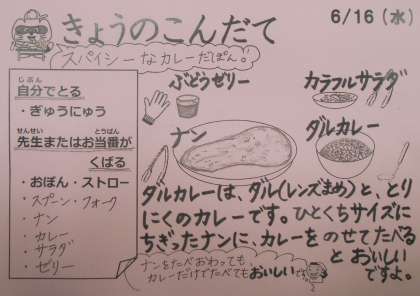 きょうのこんだて
6/16(水)
スパイシーなカレーだぽん。
自分でとる
じぶん
・ぎゅうにゅう
せんせい とうばん
先生またはお当番が
くばる
・おぼん・ストロー
・スプーン・フォーク
・ナン
・カレー
・サラダ
・ゼリー
ぶどうゼリー
カラフルサラダ
ナン
ダルカレー
ダルカレーは、ダル(レンズまめ)と、と
りにくのカレーです。ひとくちサイズに
ちぎったナンに、カレーをのせてたべる
とおいしい
ですよ。
ナンをたべおわっても
カレーだけでたべてもおいしいです